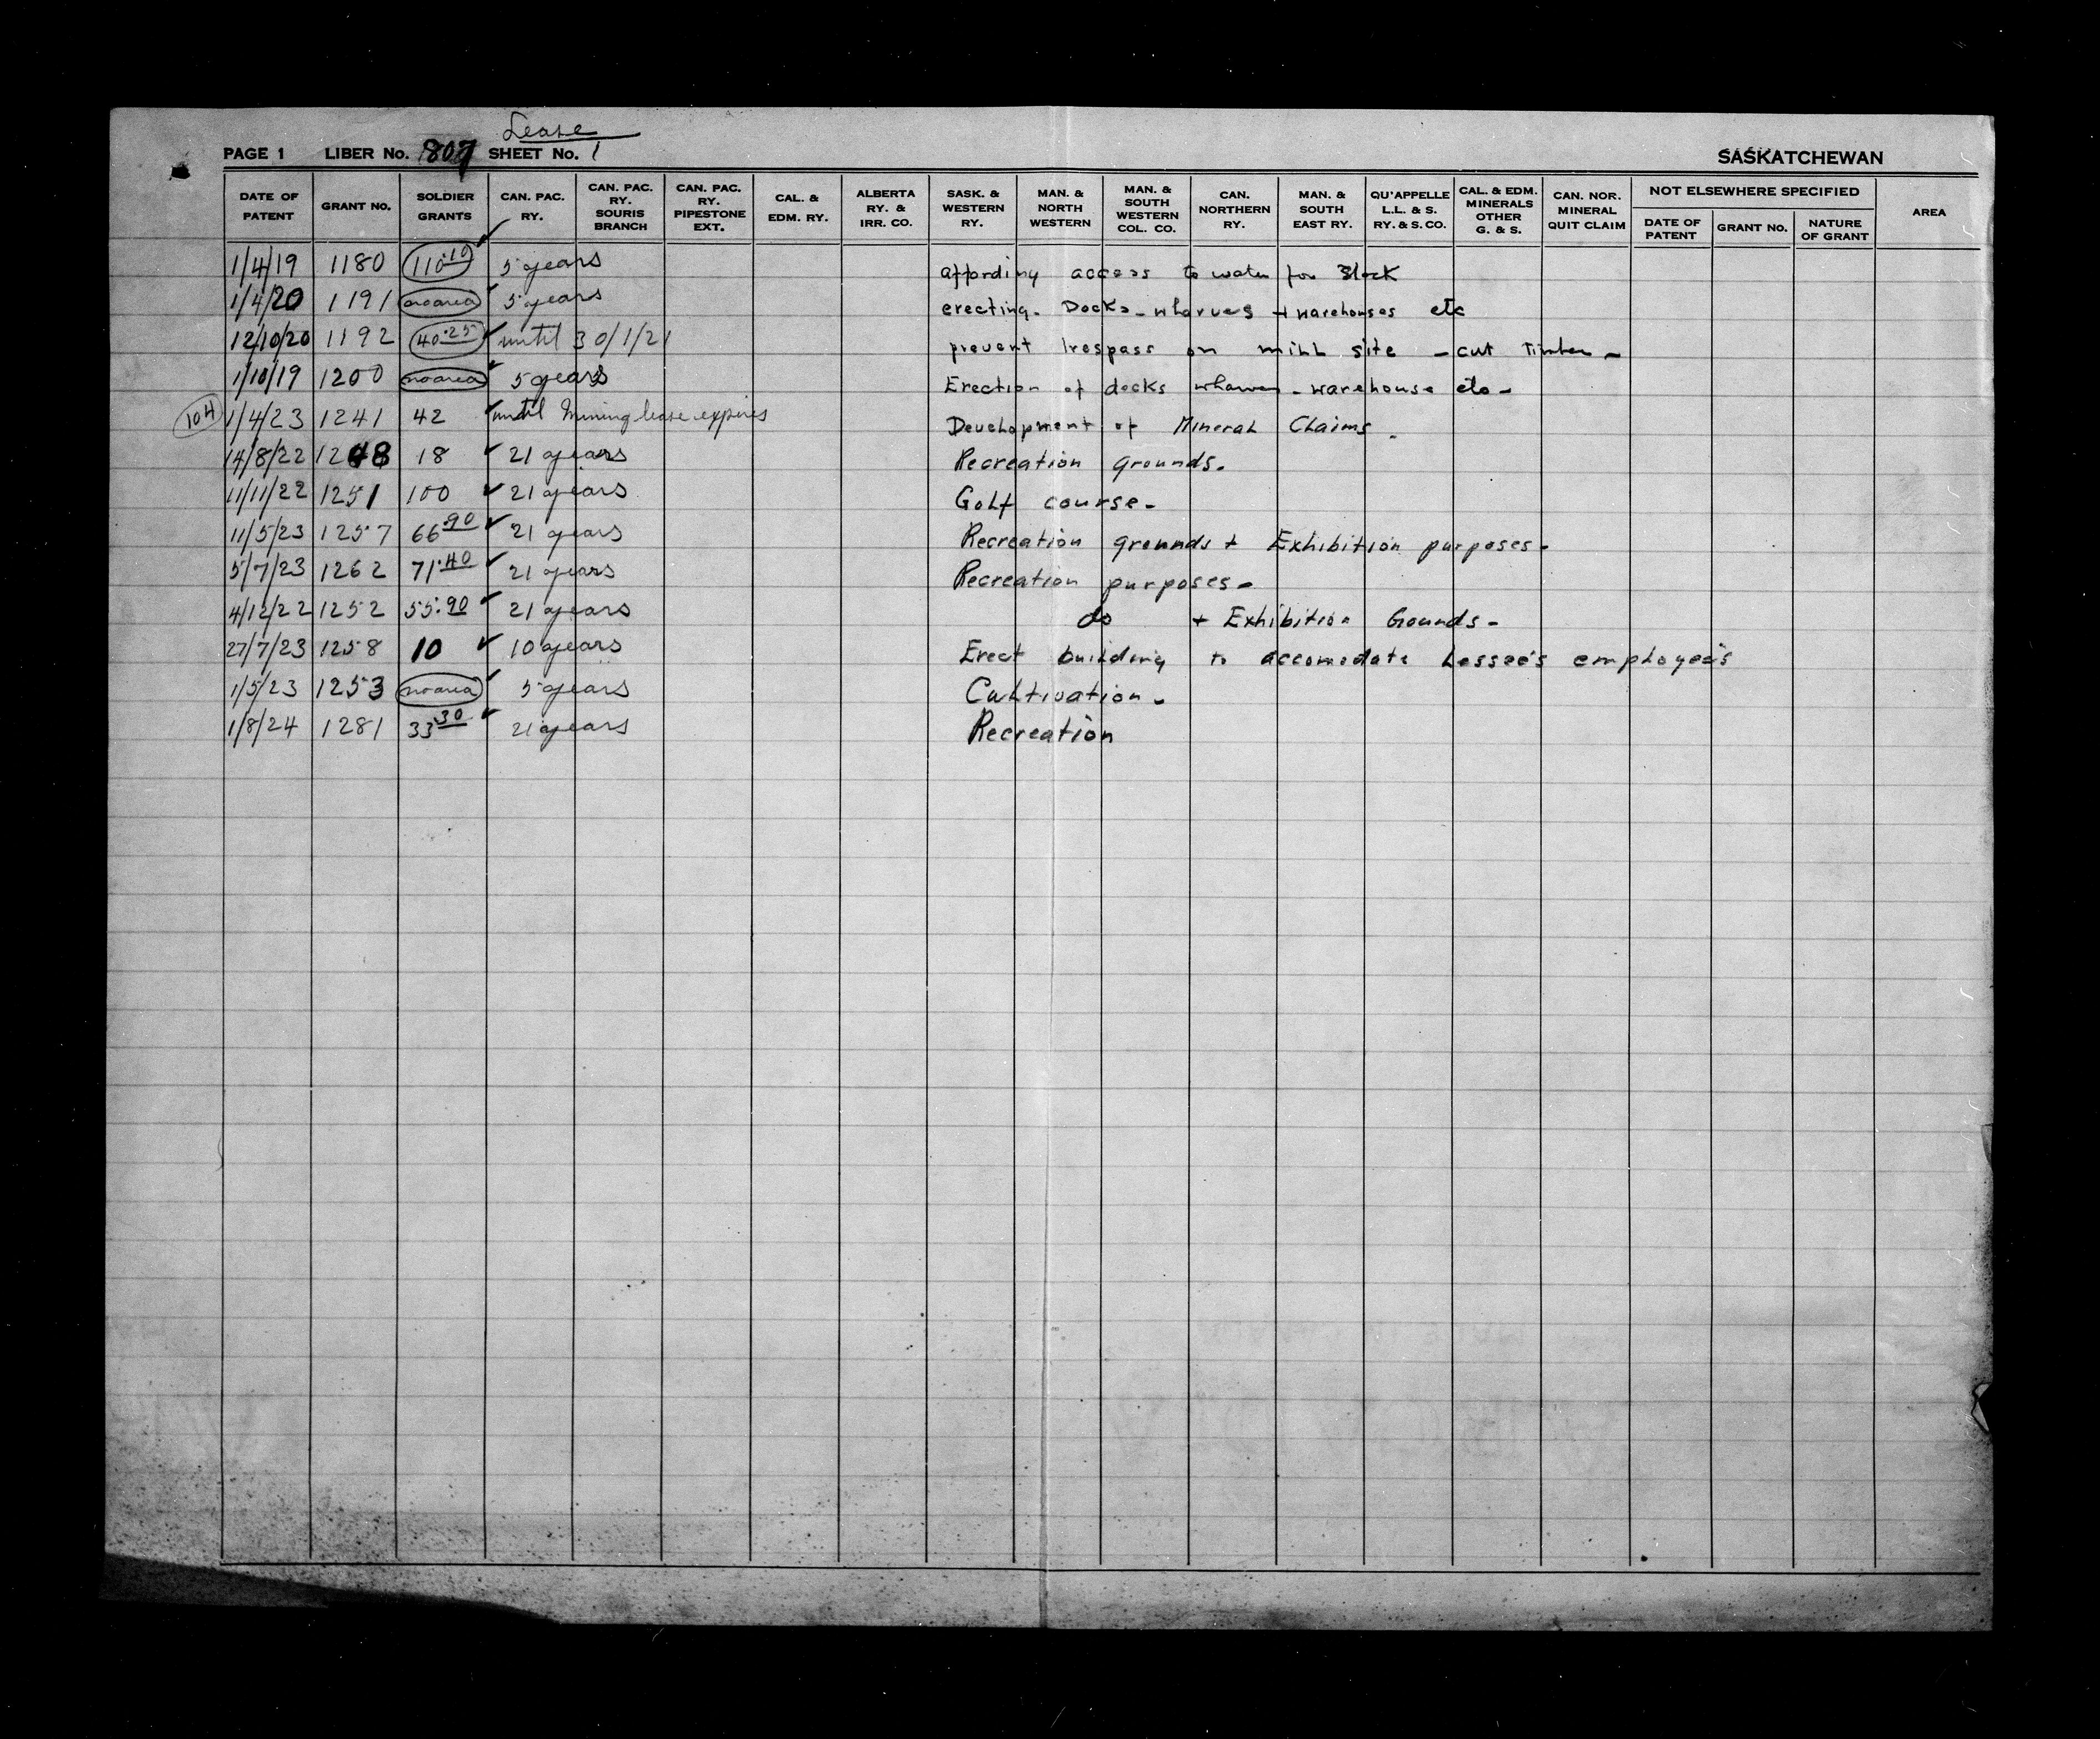 Lease
PAGE 1 LIBER No. 807 SHEET No. 1 SASKATCHEWAN
DATE OF PATENT GRANT NO. SOLDIER GRANTS CAN. PAC. RY. CAN. PAC. RY. SOURIS BRANCH CAN. PAC. RY. PIPESTONE EXT. CAL. & EDM. RY. ALBERTA RY. & IRR. CO. SASK. & WESTERN RY. MAN. & NORTH WESTERN MAN. & SOUTH WESTERN COL. CO. CAN. NORTHERN RY. MAN. & SOUTH EAST RY. QU'APPELLE L.L. & S. RY. & S. CO. CAL. & EDM. MINERALS OTHER G. & S. CAN. NOR. MINERAL QUIT CLAIM NOT ELSEWHERE SPECIFIED DATE OF PATENT GRANT NO. NATURE OF GRANT AREA
1/4/19 1180 110.10 5 years affording access to water for Stock
1/4/20 1191 no area 5 years erecting. Docks - wharves + warehouses etc
12/10/20 1192 40.25 until 30/1/21 prevent trespass on mill site - cut Timber -
1/10/19 1200 no area 5 years Erection of docks wharves - warehouse etc -
104 1/4/23 1241 42 until Mining lease expires Development of Mineral Claims.
14/8/22 1248 18 21 years Recreation grounds.
11/11/22 1251 100 21 years Golf course -
11/5/23 1257 66.90 21 years Recreation grounds + Exhibition purposes -
5/7/23 1262 71.40 21 years Recreation purposes -
4/12/22 1252 55.90 21 years do + Exhibition Grounds -
27/7/23 1258 10 10 years Erect building to accomodate Lessee's employees
1/5/23 1253 no area 5 years Cultivation -
1/8/24 1281 33.30 21 years Recreation